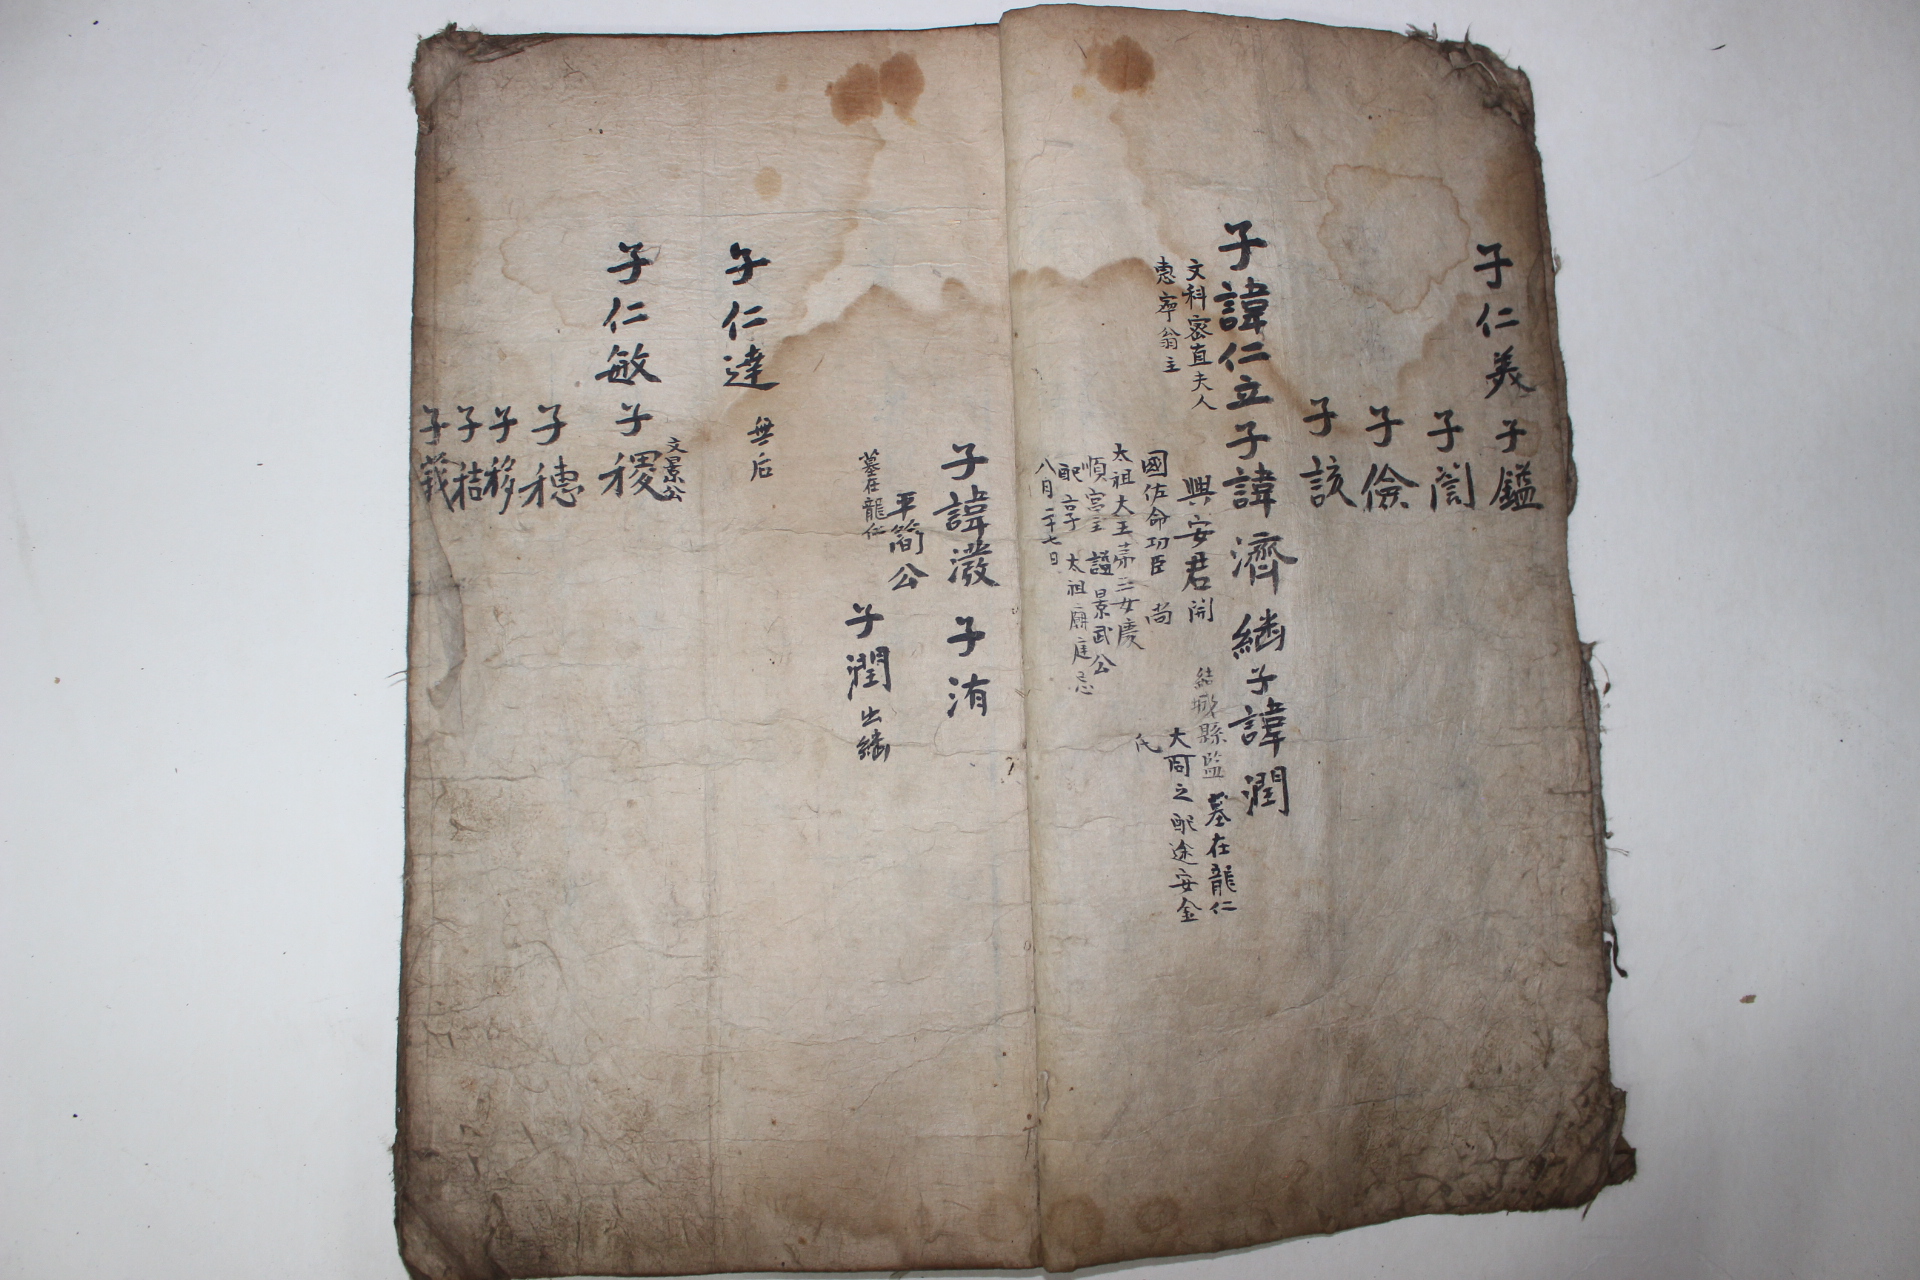 子仁義 子鎰
子誾
子儉
子該
子諱仁立 子諱濟 繼子諱潤
文科密直夫人
惠寧翁主
興安君 開
國佐命功臣 尚
太祖大王第三女慶
順宮主 謚景武公
配享 太祖廟庭 忌
八月二十七日
結城縣監 墓在龍仁
大同之 配遂安金
氏
子諱潑 子洧
平簡公 子潤 出繼
墓在龍仁
子仁達 無后
子仁敏 子稷 文景公
子穗
子移
子秸